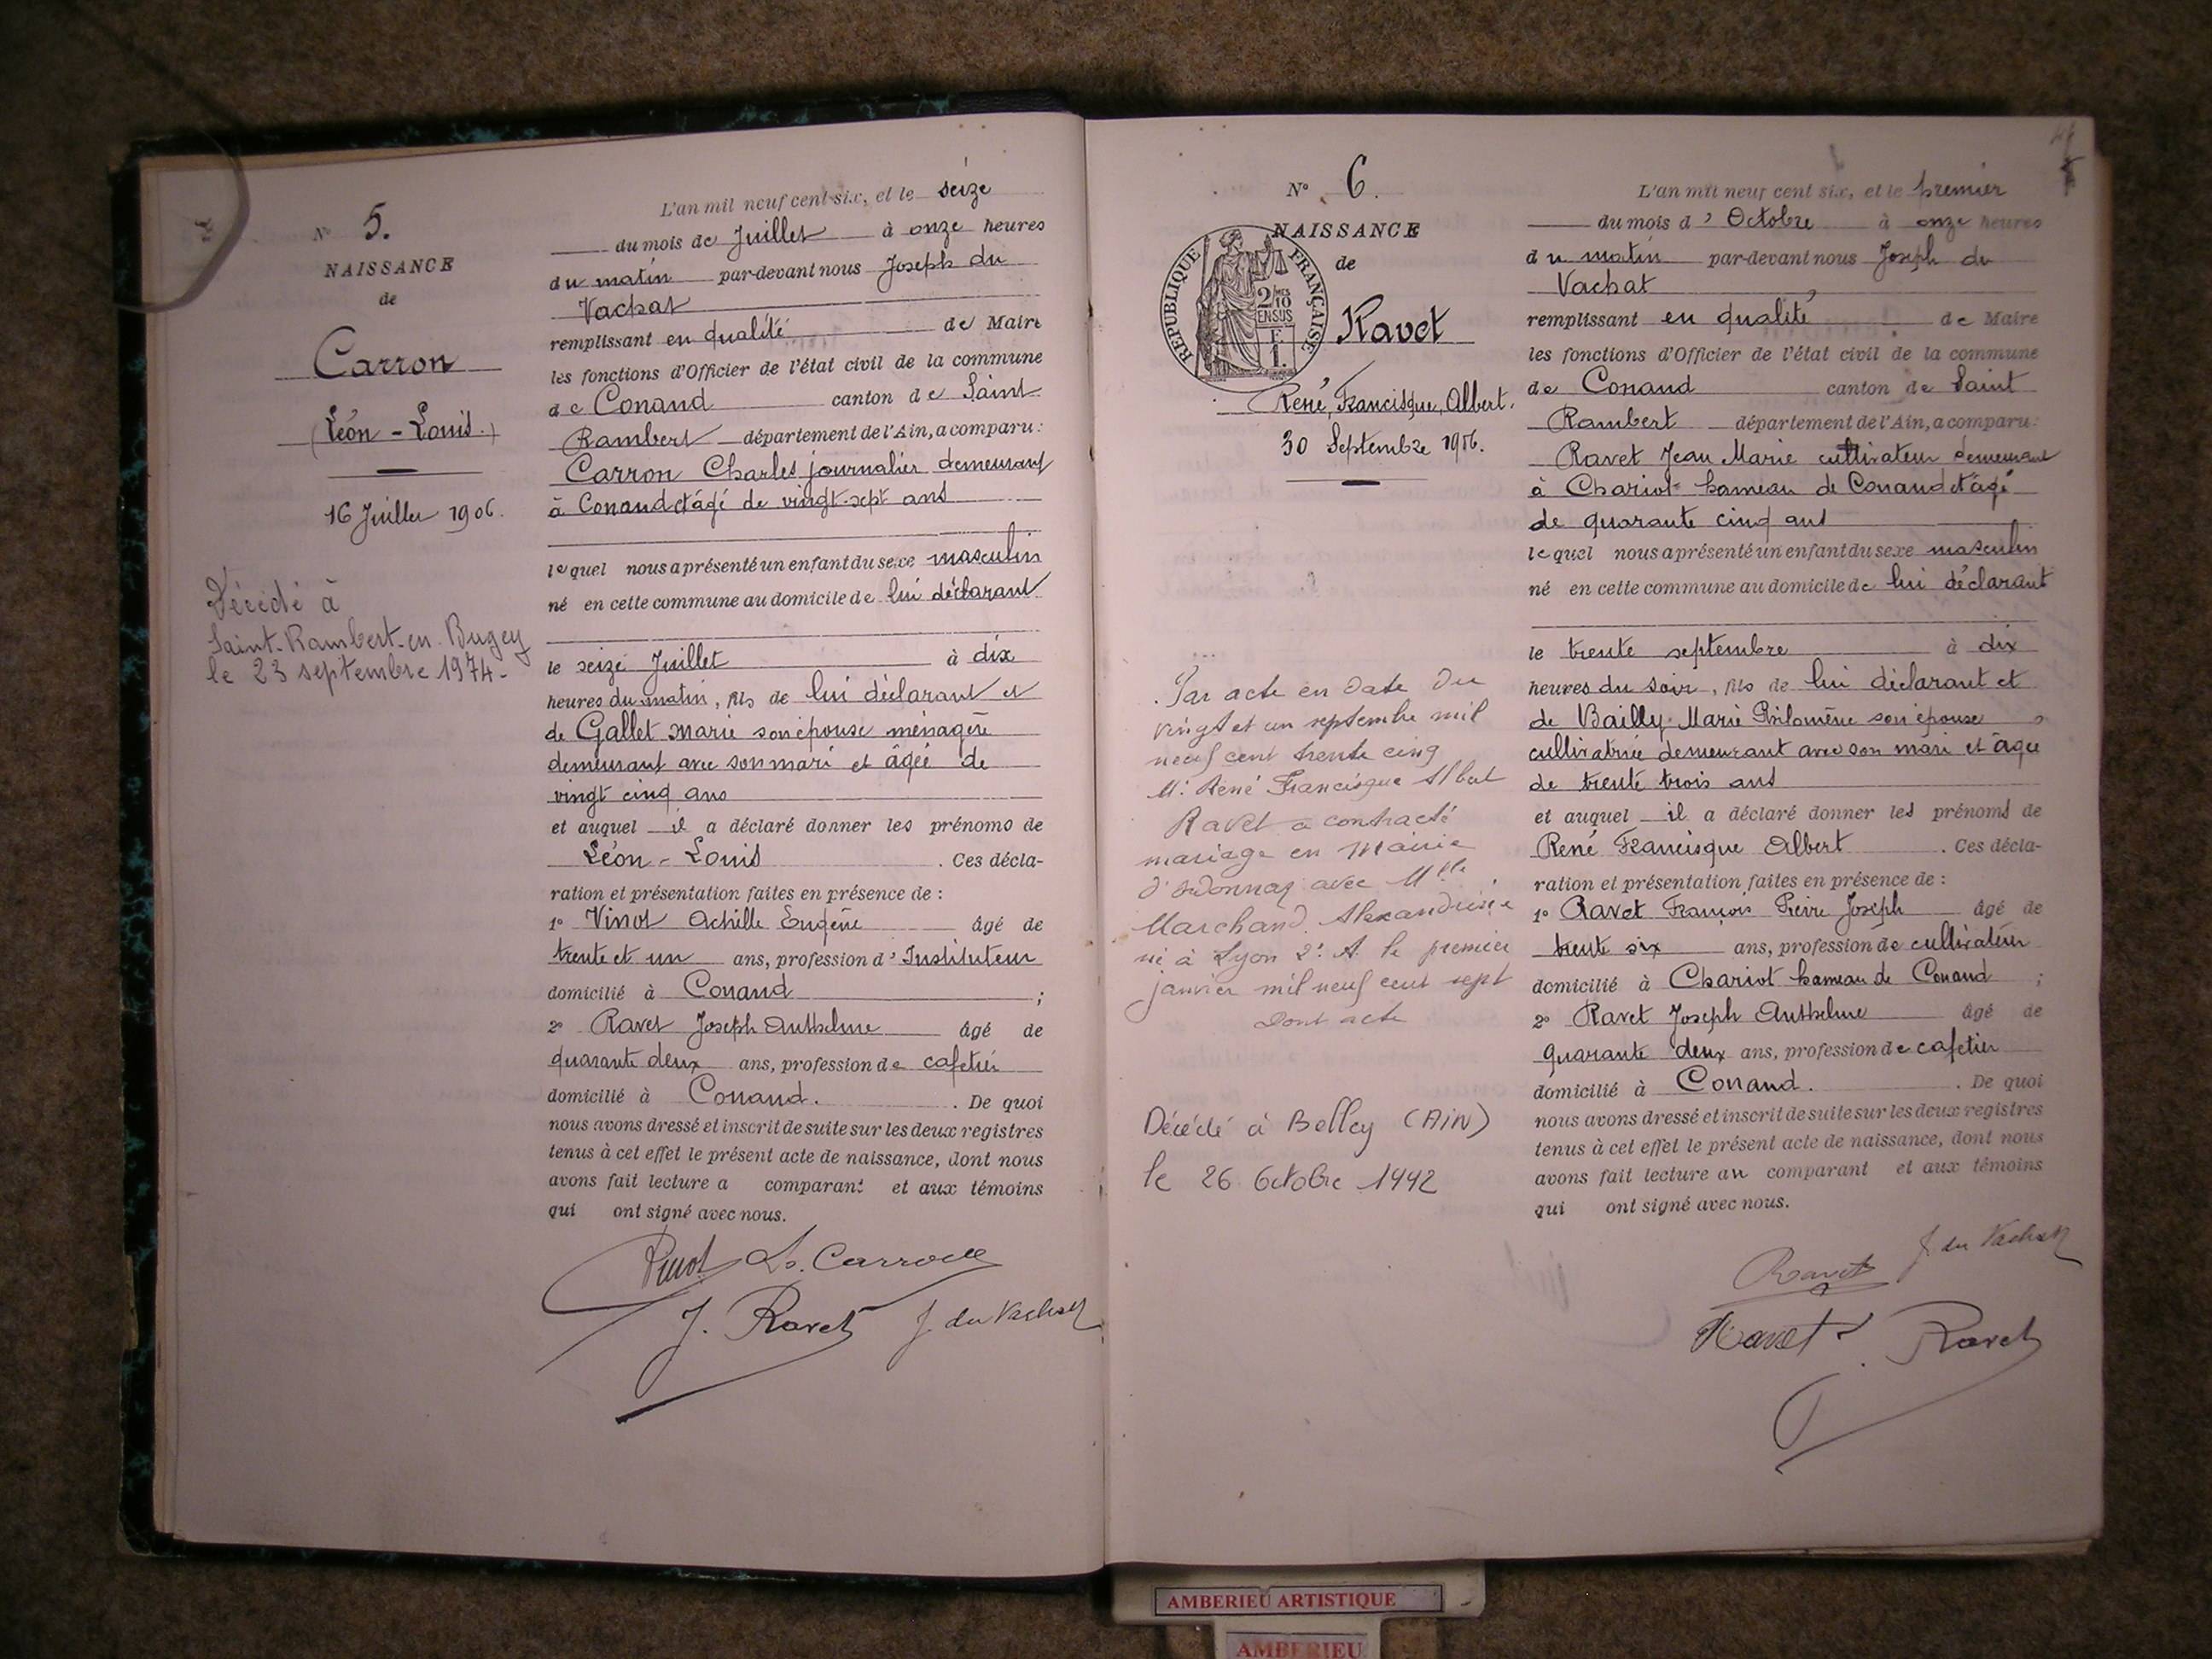 N° 5.
NAISSANCE
de
Carron
(Léon-Louis.)
16 Juillet 1906.
Décédé à
Saint-Rambert-en-Bugey
le 23 septembre 1974-
L'an mil neuf cent six, et le seize
du mois de Juillet à onze heures
du matin par-devant nous Joseph du
Vachat
remplissant en qualité de Maire
les fonctions d'Officier de l'état civil de la commune
de Conand canton de Saint
Rambert département de l'Ain, a comparu:
Carron Charles journalier demeurant
à Conand et âgé de vingt-sept ans
lequel nous a présenté un enfant du sexe masculin
né en cette commune au domicile de lui déclarant
le seize Juillet à dix
heures du matin, fils de lui déclarant et
de Gallet Marie son épouse ménagère
demeurant avec son mari et âgée de
vingt cinq ans
et auquel il a déclaré donner les prénoms de
Léon-Louis. Ces décla-
ration et présentation faites en présence de:
1° Vinot Achille Eugène âgé de
trente et un ans, profession d'Instituteur
domicilié à Conand;
2° Ravet Joseph Anthelme âgé de
quarante deux ans, profession de cafetier
domicilié à Conand. . De quoi
nous avons dressé et inscrit de suite sur les deux registres
tenus à cet effet le présent acte de naissance, dont nous
avons fait lecture a comparant et aux témoins
qui ont signé avec nous.
Vinot Carron
J. Ravet J. du Vachat
N° 6.
NAISSANCE
de
REPUBLIQUE FRANÇAISE
2/10
EN SUS
F
1.
Ravet
René, Francisque, Albert.
30 Septembre 1906.
Par acte en date du
vingt et un septembre mil
neuf cent trente cinq
Mr René Francisque Albert
Ravet a contracté
mariage en Mairie
d'Ordonnaz avec Mlle
Marchand Alexandrine
né à Lyon 2e A. le premier
janvier mil neuf cent sept
dont acte
Décédé à Belley (AIN)
le 26 Octobre 1992
L'an mil neuf cent six, et le premier
du mois d'Octobre à onze heures
du matin par-devant nous Joseph du
Vachat
remplissant en qualité de Maire
les fonctions d'Officier de l'état civil de la commune
de Conand canton de Saint
Rambert département de l'Ain, a comparu:
Ravet Jean Marie cultivateur demeurant
à Chariot hameau de Conand et âgé
de quarante cinq ans
lequel nous a présenté un enfant du sexe masculin
né en cette commune au domicile de lui déclarant
le trente septembre à dix
heures du soir, fils de lui déclarant et
de Bailly Marie Philomène son épouse
cultivatrice demeurant avec son mari et âgée
de trente trois ans
et auquel il a déclaré donner les prénoms de
René Francisque Albert. Ces décla-
ration et présentation faites en présence de:
1° Ravet François Pierre Joseph âgé de
trente six ans, profession de cultivateur
domicilié à Chariot hameau de Conand;
2° Ravet Joseph Anthelme âgé de
quarante deux ans, profession de cafetier
domicilié à Conand. . De quoi
nous avons dressé et inscrit de suite sur les deux registres
tenus à cet effet le présent acte de naissance, dont nous
avons fait lecture au comparant et aux témoins
qui ont signé avec nous.
Ravet J. du Vachat
Ravet Ravet
AMBERIEU ARTISTIQUE
AMBERIEU